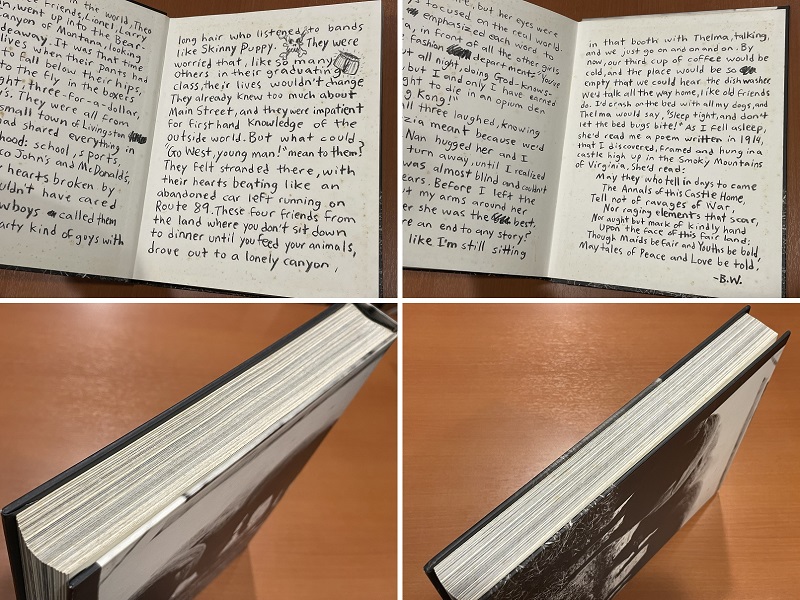 in the world, Theo
friends, Lionel, Larry
went up into the Bear-
Canyon of Montana, looking
hideaway. It was that time
lives when their pants had
to fall below their hips,
to the fly in the boxers
three-for-a-dollar,
They were all from
small town of Livingston
had shared everything in
hood: school, sports,
John's and McDonald's,
hearts broken by
wouldn't have cared
cowboys called them
arty kind of guys with
long hair who listened to bands
like Skinny Puppy. They were
worried that, like so many
others in their graduating
class, their lives wouldn't change
They already knew too much about
Main Street, and they were impatient
for firsthand knowledge of the
outside world. But what could
"Go West, young man!" mean to them?
They felt stranded there, with
their hearts beating like an
abandoned car left running on
Route 89. These four friends from
the land where you don't sit down
to dinner until you feed your animals,
drove out to a lonely canyon,
but her eyes were
focused on the real world.
emphasized each word to
in front of all the other girls
fashion department: "You've
out all night, doing God-knows-
but I and only I have earned
right to die in an opium den
Kong!"
all three laughed, knowing
meant because we'd
Nan hugged her and I
turn away, until I realized
was almost blind and couldn't
tears. Before I left the
my arms around her
her she was the best.
are an end to any story?
like I'm still sitting
in that booth with Thelma, talking,
and we just go on and on and on. By
now, our third cup of coffee would be
cold, and the place would be so
empty that we could hear the dishwasher
We'd talk all the way home, like old friends
do. I'd crash on the bed with all my dogs, and
Thelma would say, "Sleep tight, and don't
let the bed bugs bite!" As I fell asleep,
she'd read me a poem written in 1914,
that I discovered, framed and hung in a
castle high up in the Smoky Mountains
of Virginia. She'd read:
May they who tell in days to come
The Annals of this Castle Home,
Tell not of ravages of War
Nor raging elements that scar,
Nor aught but mark of kindly hand
Upon the face of this fair land;
Though Maids be fair and Youths be bold,
May tales of Peace and Love be told,
-B.W.